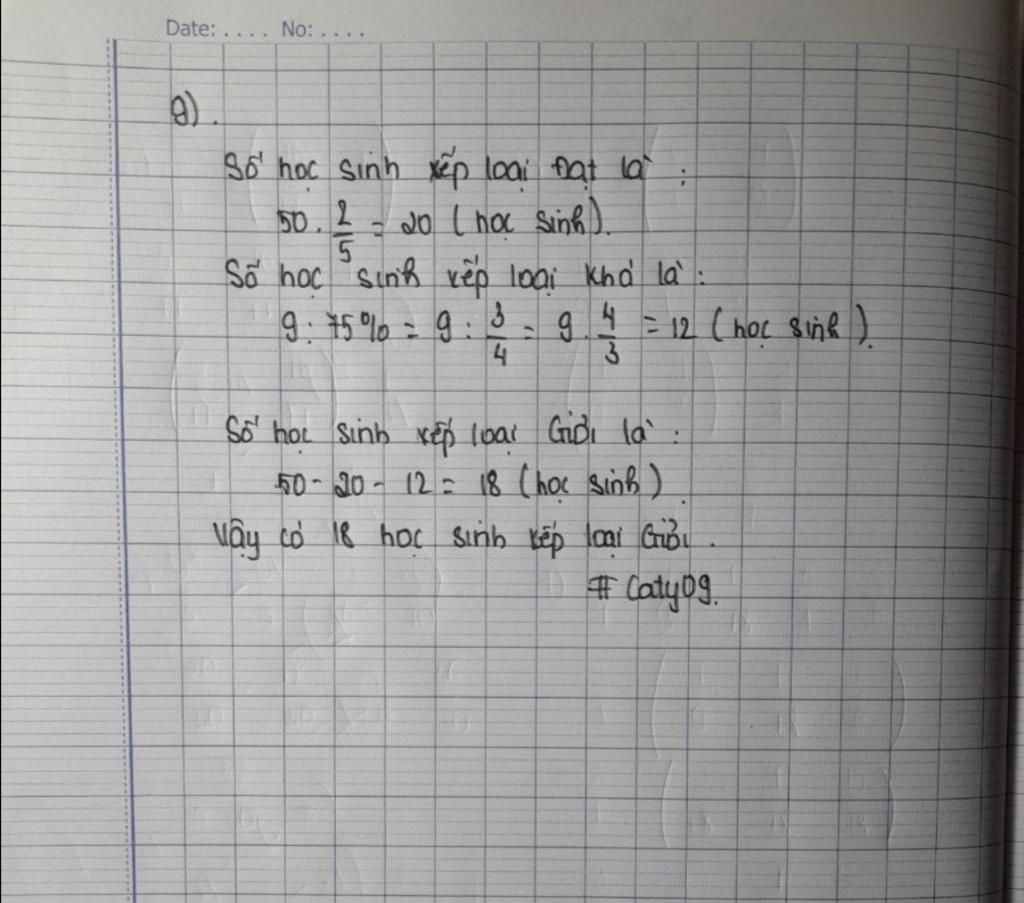 Date: .... No: ....
9).
Số học sinh xếp loại Đạt là :
50 . 2/5 = 20 (học sinh).
Số học sinh xếp loại khá là :
9 : 75% = 9 : 3/4 = 9 . 4/3 = 12 (học sinh).
Số học sinh xếp loại Giỏi là :
50 - 20 - 12 = 18 (học sinh).
Vậy có 18 học sinh xếp loại Giỏi .
# Caty09.